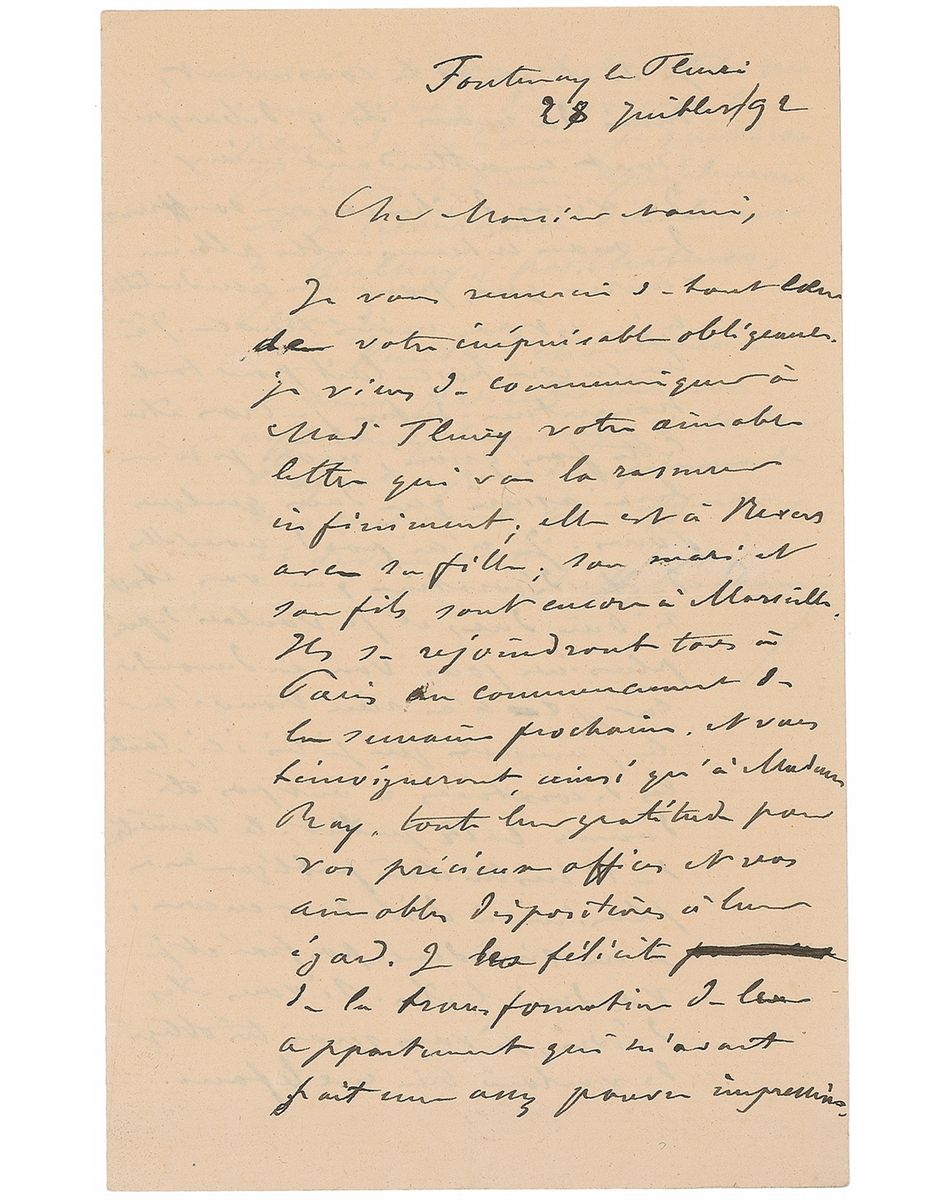 Fontenay le Fleuri
28 Juillet/92
Cher Monsieur
Je vous remercie de tout cœur
de votre inépuisable obligeance.
je viens de communiquer à
Mad Fleury votre aimable
lettre qui va la rassurer
infiniment, elle est à Nevers
avec sa fille; son mari et
son fils sont encore à Marseille.
Ils se rejoindront tous à
Paris au commencement de
la semaine prochaine, et vous
témoigneront ainsi qu'à Madame
Ray, toute leur gratitude pour
vos précieux offices et vos
aimables dispositions à leur
égard. Je les félicite
de la transformation de leur
appartement qui m'avait
fait une assez pauvre impression.